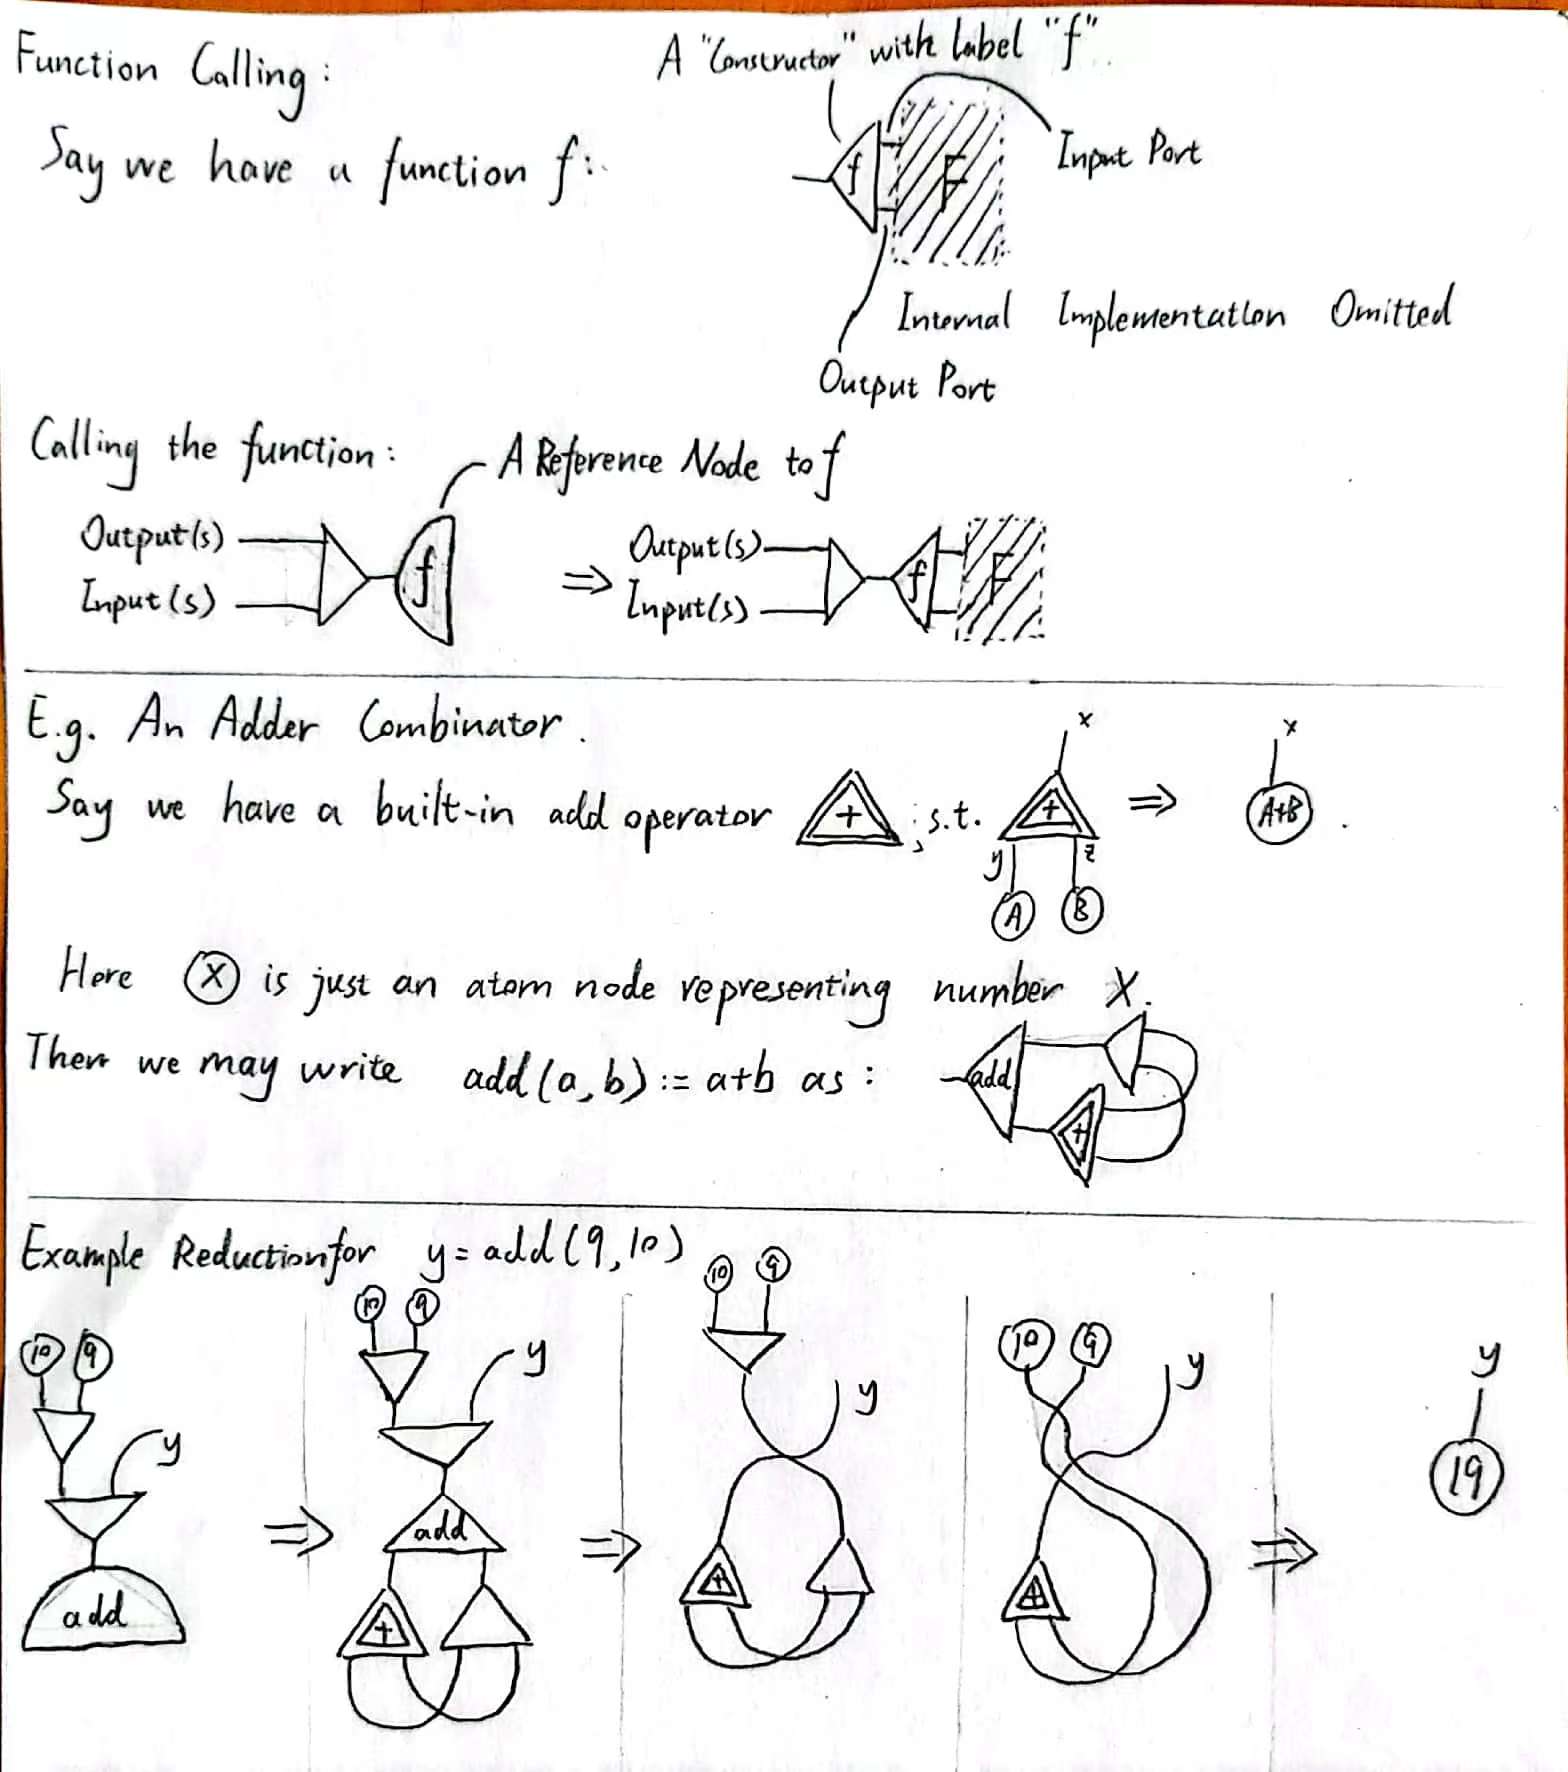 Function Calling:
A "Constructor" with label "f".
Say we have a function f:
f
F
Input Port
Internal Implementation Omitted
Output Port
Calling the function:
A Reference Node to f
Output(s)
Input(s)
f
⇒
Output(s)
Input(s)
f
F
E.g. An Adder Combinator.
Say we have a built-in add operator + , s.t.
x
+
y z
A B
⇒
x
A+B
.
Here X is just an atom node representing number X.
Then we may write add(a,b) := a+b as:
add
+
Example Reduction for y = add(9,10)
10 9
y
add
⇒
10 9
y
add
+
⇒
10 9
y
+
10 9
y
+
⇒
y
19